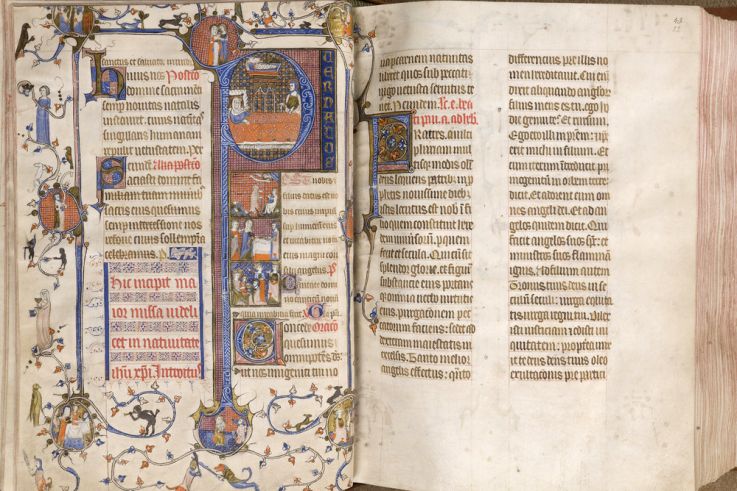 sanctus et salvator mundi.
divinus nos Postco
domine sacramen
semp novitas natalis
instauret. cuius nativitas
singularis humanam
reppulit vetustatem. Per
Alia postco
actasti domine fa
miliam tuam muni
sacris eius quesumus
semp interventione nos
refove cuius sollempnia
celebramus. P
Hic incipit ma
ior missa videli
cet in nativitate
ihu xpi. Introitus
PUER NATUS E
nobis
filius datus est no
bis cuius imperi
humerum
vocabitur nom
magni con
angelus. P
Cantate do
mino canticū novū
Gloria pa.
Concede Oracō
quesumus
omnipotēs ds.
ut nos unigeniti tui no
va p carnem nativitas
liberet quos sub peccati
iugo vetusta servitus te
net. P eundem. Lc. e. bea
ti pauli a. ad heb.
Fratres. multi
phariam mul
tisq modis olī
deus loquens patrib; in p
phetis novissime dieb;
istis locutus est nob in fi
lio quem constituit here
dem universorum. p quem
fecit et secula. Qui cum sit
splendor glorie. et figura
substancie eius portans
q omnia verbo virtutis
eius. purgacionem pec
catorum faciens: sedet ad
dexteram maiestatis in
excelsis. Tanto melior
angelis effectus: quanto
differencius pre illis no
men hereditavit. Cui enī
dixit aliquando anglōr
filius meus es tu. ego ho
die genui te? Et rursum.
Ego ero illi in prem: et ip
se erit michi in filium. Et
cum iterum introducit pri
mogenitū in orbem terre:
dicit. Et adorent eum om
nes angeli dei. Et ad an
gelos quidem dicit. Qui
facit angelos suos sps: et
ministros suos flammā
ignis. Ad filium autem
Tronus tuus deus in se
culum seculi: virga equita
tis virga regni tui. Dilex
isti iusticiam et odisti ini
quitatem: propterea unx
it te deus deus tuus oleo
exultacionis pre partici